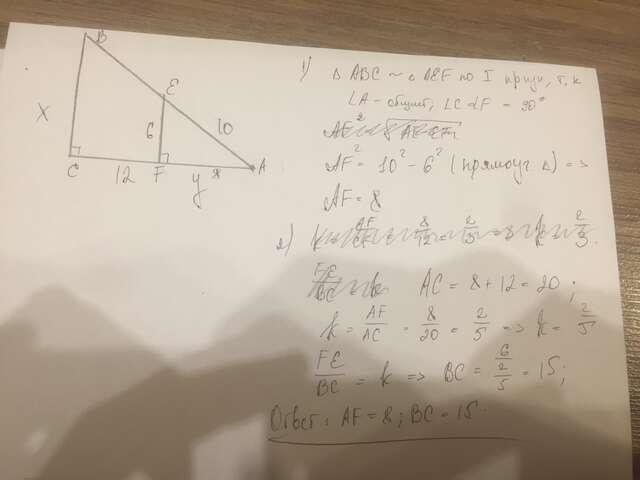 X
B
C
12
F
6
E
y
8
10
A
1) △ABC ~ △AEF по I призн, т.к
∠A - общий, ∠C = ∠F = 90°
AF² = 10² - 6² (прямоуг △) =>
AF = 8
2)
AC = 8 + 12 = 20;
k = AF/AC = 8/20 = 2/5 => k = 2/5
FE/BC = k => BC = 6/(2/5) = 15;
Ответ: AF = 8; BC = 15.